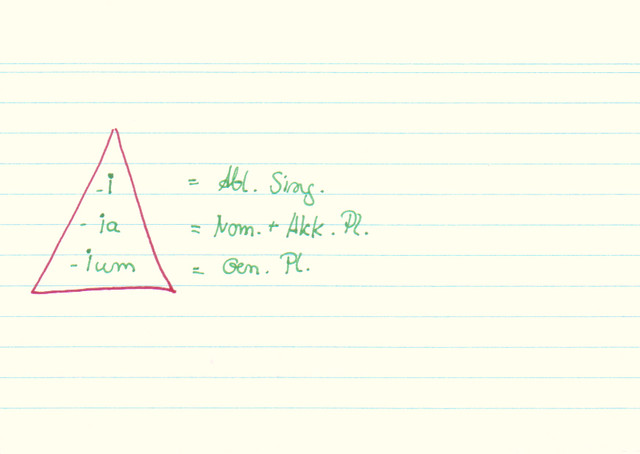 -i = Abl. Sing.
-ia = Nom. + Akk. Pl.
-ium = Gen. Pl.